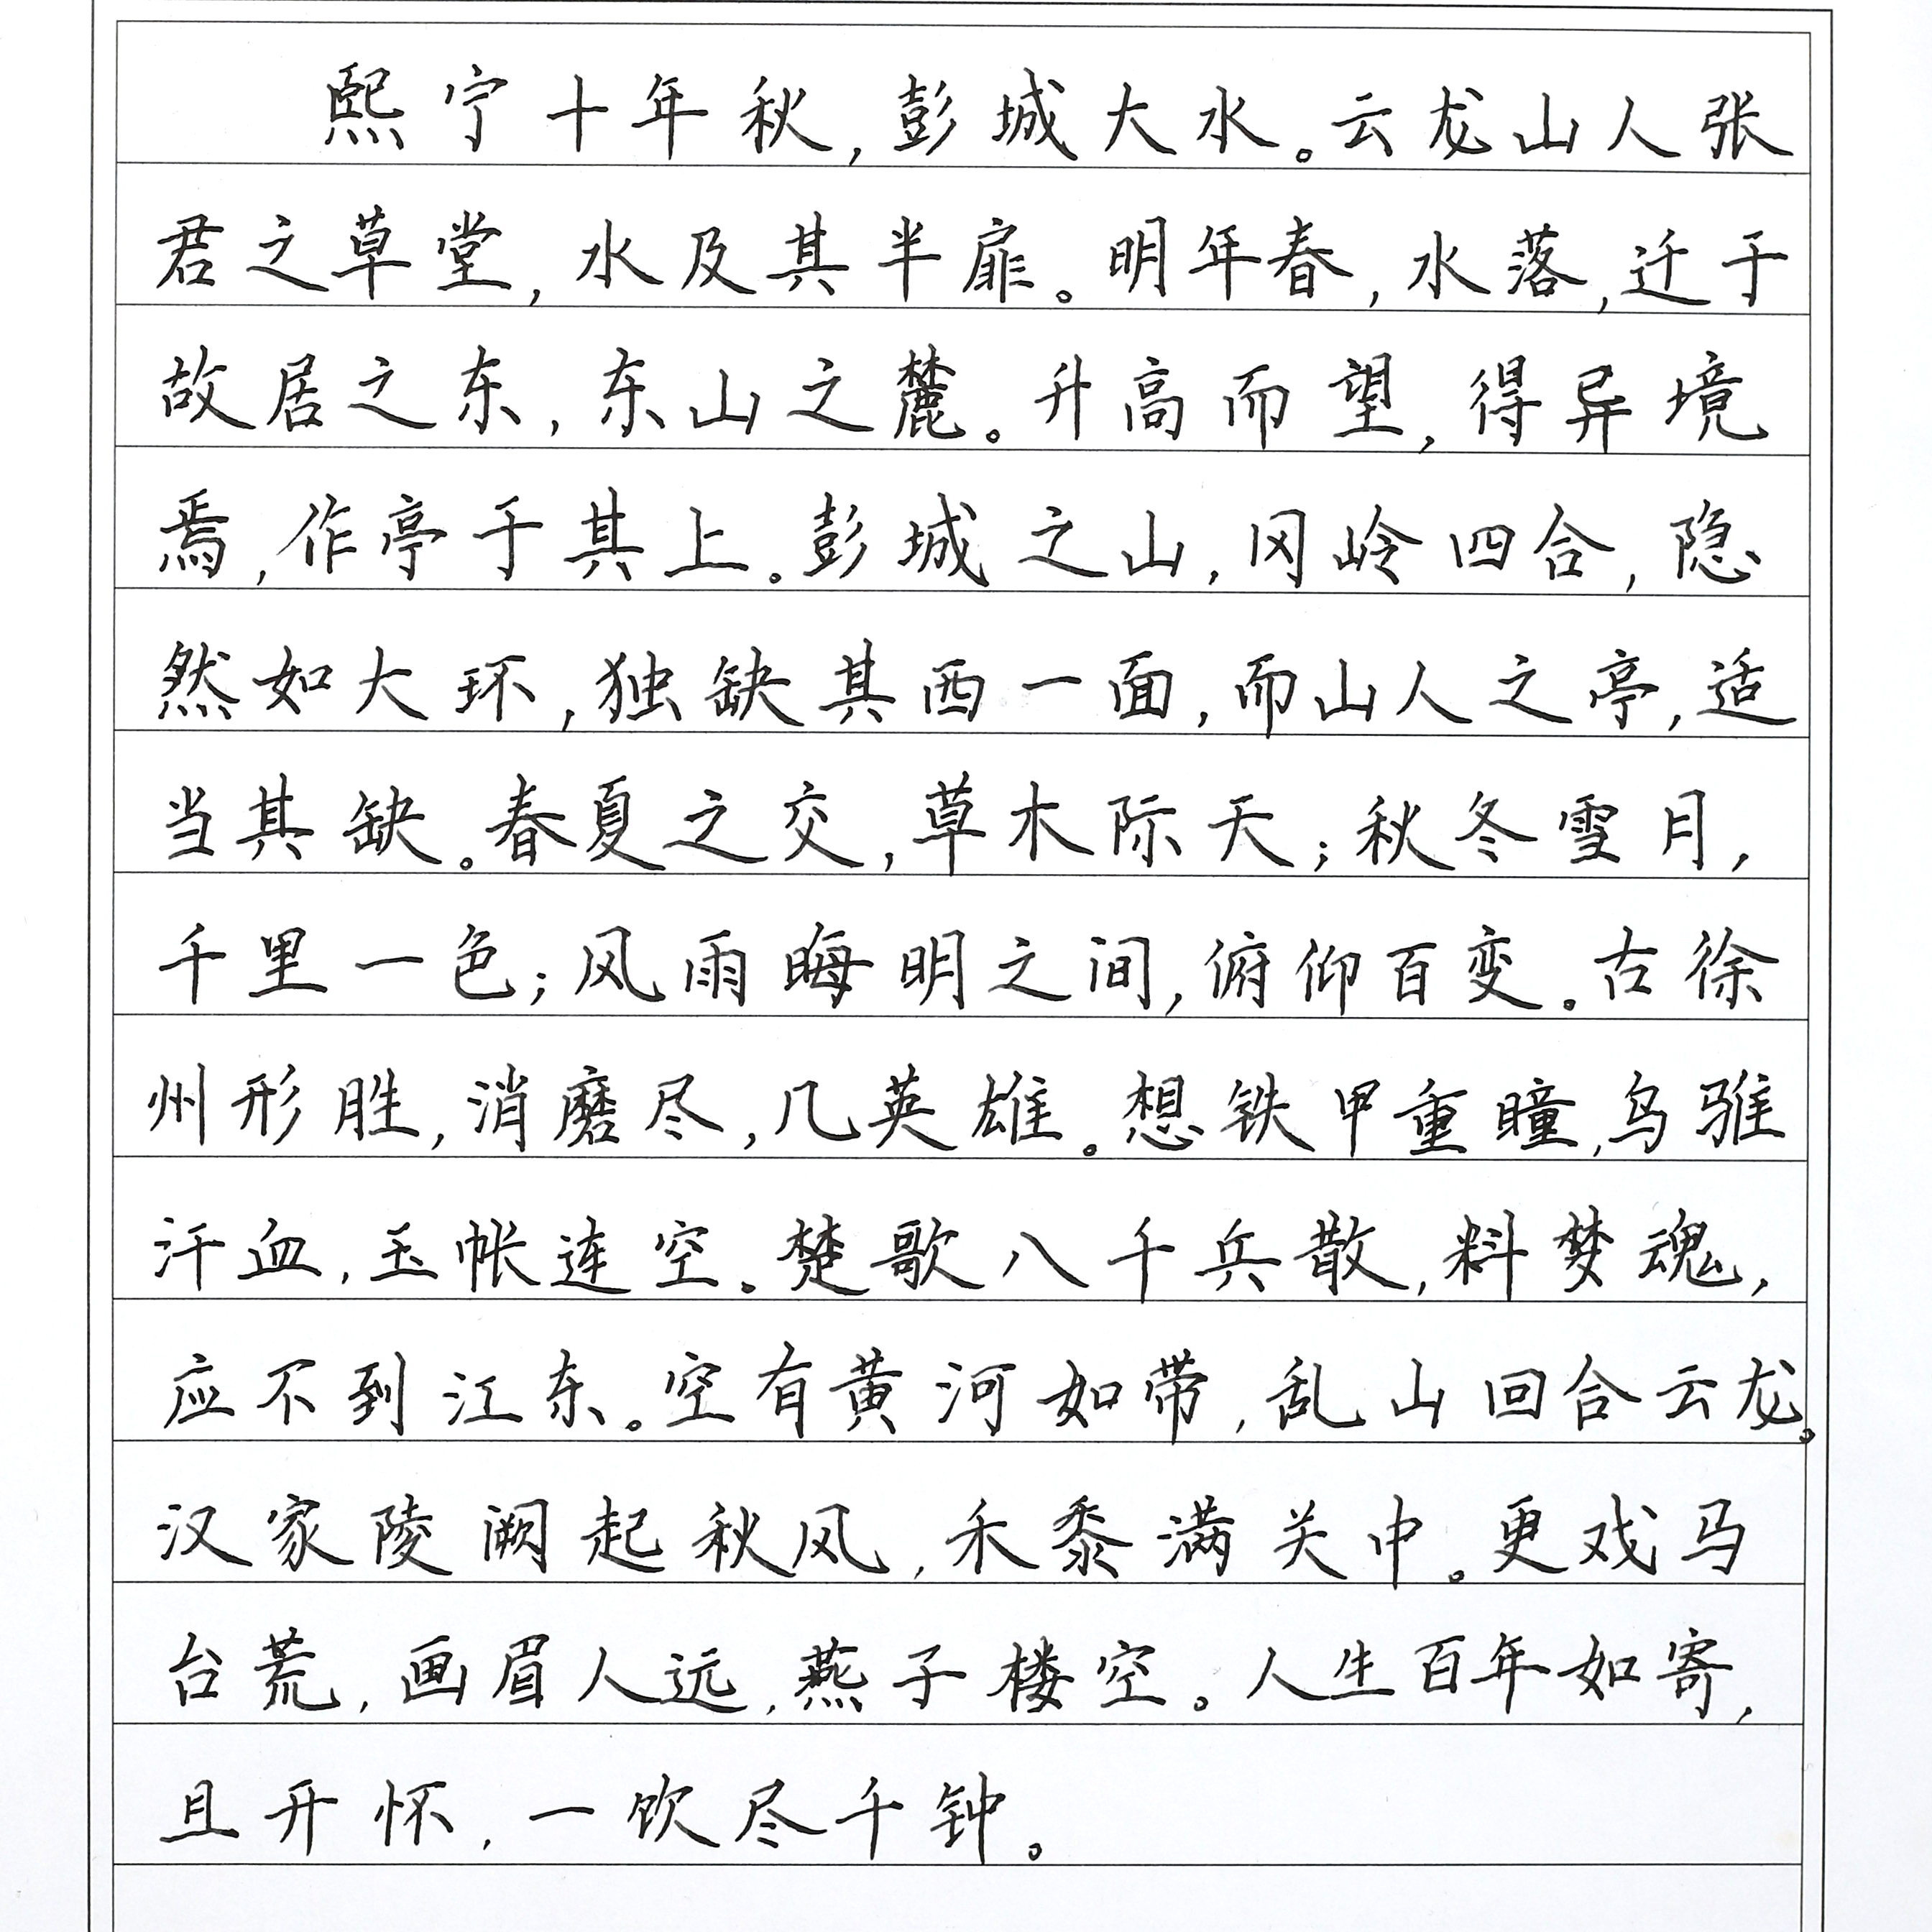 熙宁十年秋,彭城大水。云龙山人张
君之草堂,水及其半扉。明年春,水落,迁于
故居之东,东山之麓。升高而望,得异境
焉,作亭于其上。彭城之山,冈岭四合,隐
然如大环,独缺其西一面,而山人之亭,适
当其缺。春夏之交,草木际天;秋冬雪月,
千里一色;风雨晦明之间,俯仰百变。古徐
州形胜,消磨尽,几英雄。想铁甲重瞳,乌骓
汗血,玉帐连空。楚歌八千兵散,料梦魂,
应不到江东。空有黄河如带,乱山回合云龙。
汉家陵阙起秋风,禾黍满关中。更戏马
台荒,画眉人远,燕子楼空。人生百年如寄,
且开怀,一饮尽千钟。